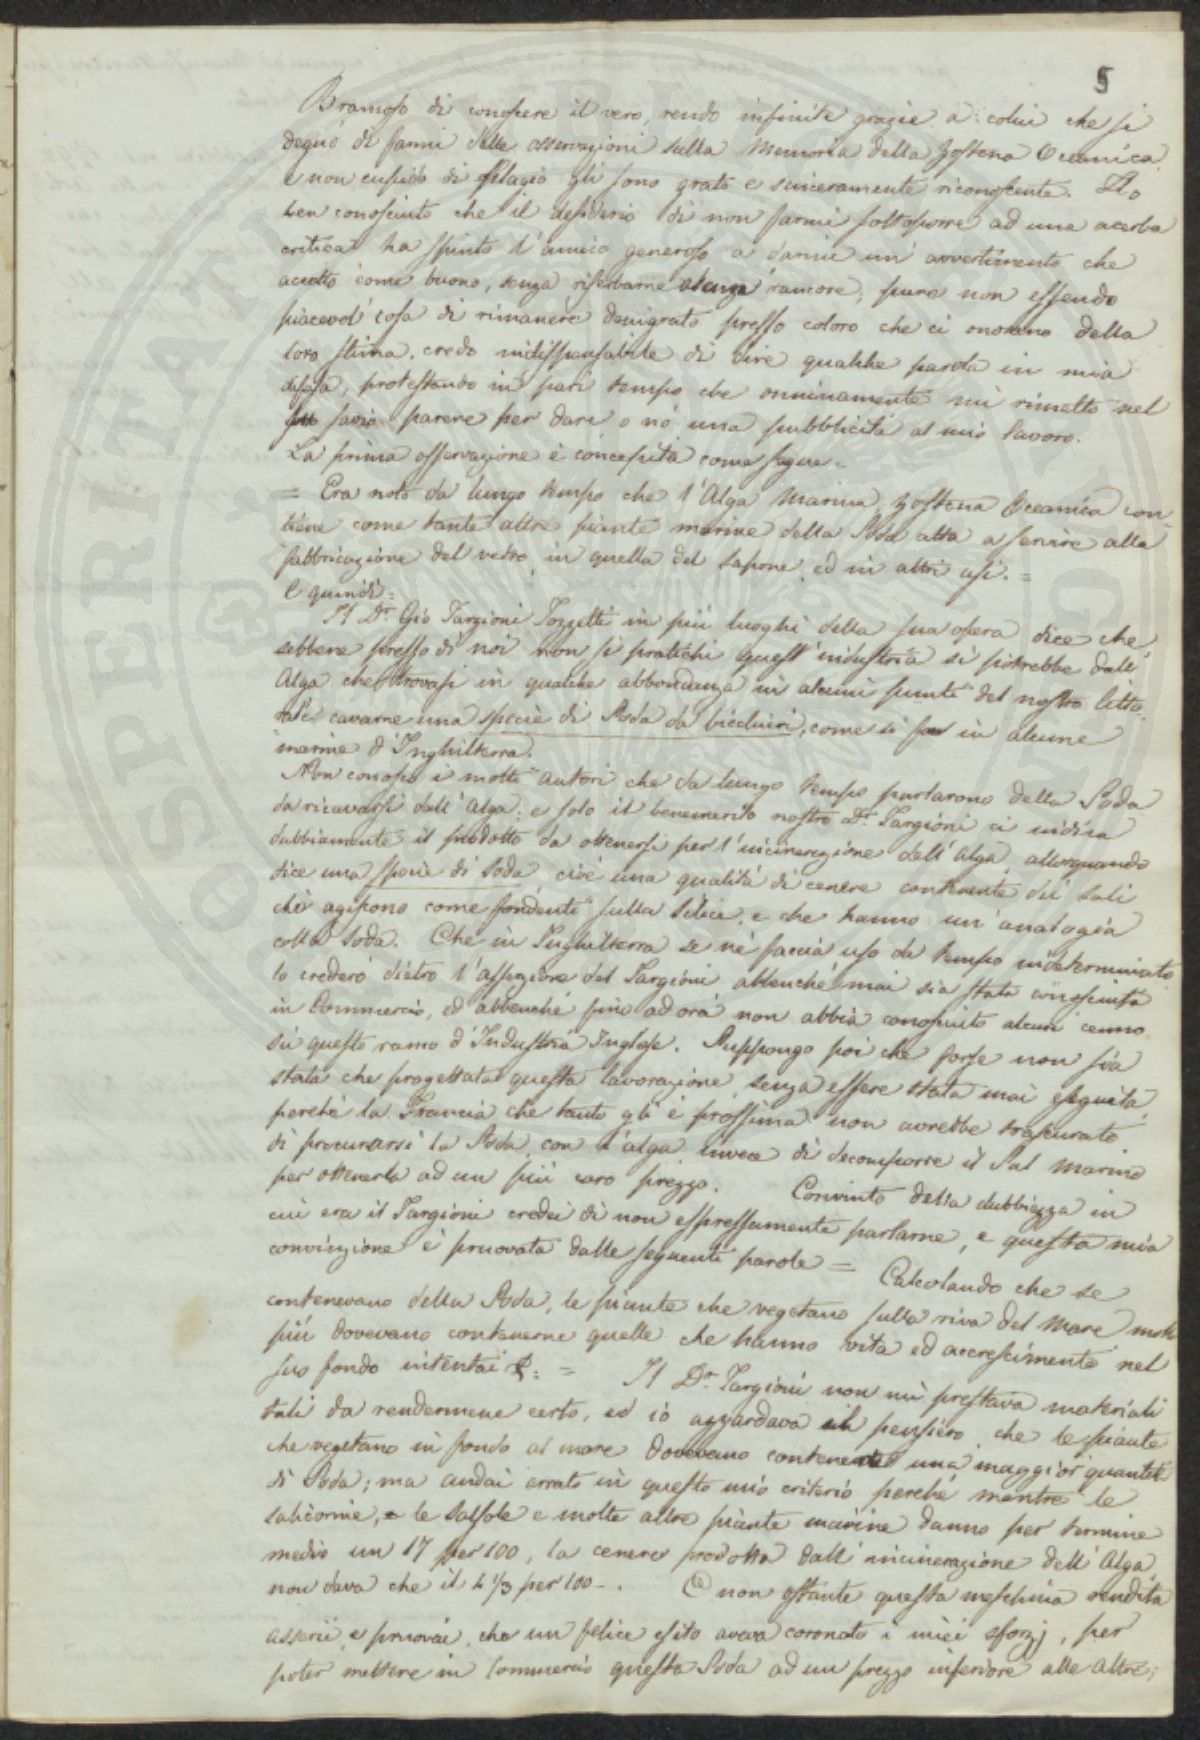 5
Bramoso di conoscere il vero, rendo infinite grazie a colui che si
degnò di farmi delle osservazioni sulla Memoria della Zostena Oceanica
e non cupido di plagio gli sono grato e sinceramente riconoscente. Ho
ben conosciuto che il desiderio di non farmi sottoporre ad una acerba
critica ha spinto l'amico generoso a darmi un' avvertimento che
accetto come buono, senza riserbarne alcun rancore; pure non essendo
piacevol cosa di rimanere denigrato presso coloro che ci onorano della
loro stima, credo indisspensabile di dire qualche parola in mia
difesa, protestando in pari tempo che onninamente mi rimetto nel
savio parere per dare o nò una pubblicità al mio lavoro.
La prima osservazione è concepita come segue =
= Era noto da lungo tempo che l'Alga Marina, Zostena Oceanica con
tiene come tante altre piante marine della Soda atta a servire alla
fabbricazione del vetro, in quella del sapone, ed in altri usi. =
E quindi =
Il Dr. Gio Targioni Tozzetti in più luoghi della sua opera dice che
sebbene presso di noi non si pratichi quest'industria si potrebbe dall'
Alga che trovasi in qualche abbondanza in alcuni punti del nostro litto
rale cavarne una specie di Soda da bicchieri, come si fa in alcune
marine d'Inghilterra.
Non conosco i molti autori che da lungo tempo parlarono della Soda
da ricavarsi dall'alga; e solo il benemerito nostro Dr. Targioni ci indica
dubbiamente il prodotto da ottenersi per l'incinerezione dell'Alga, allorquando
dice una specie di soda cioè una qualità di cenere contenente dei sali
che agiscono come fondenti sulla Silice, e che hanno un'analogia
colla Soda. Che in Inghilterra se ne faccia uso da tempo indeterminato
lo crederò dietro l'asserzione del Targioni abbenché mai sia stata conosciuta
in Commercio, ed abbenché fino ad ora non abbia conosciuto alcun cenno
sù questo ramo d'Industria Inglese. Suppongo poi che forse non sia
stata che progettata questa lavorazione senza essere stata mai eseguita,
perché la Francia che tanto gli è prossima non avrebbe trascurato
di procurarsi la Soda, con l'alga invece di decomporre il Sal marino
per ottenerla ad un più caro prezzo. Convinto della dubbiezza in
cui era il Targioni credei di non espressamente parlarne, e questa mia
convinzione è pruovata dalle seguenti parole = Calcolando che se
contenevano della Soda, le piante che vegetano sulla riva del Mare molto
più dovevano contenerne quelle che hanno vita ed accrescimento nel
suo fondo intentai = Il Dr. Targioni non mi prestava materiali
tali da rendermene certo, ed io azzardava il pensiero che le piante
che vegetano in fondo al mare dovevano contenere una maggior quantità
di Soda; ma andai errato in questo mio criterio perché mentre le
salicornie, e le salsole e molte altre piante marine danno per termine
medio un 17 per 100, la cenere prodotta dall'incinerazione dell'Alga
non dava che il 4 1/3 per 100 - . E non ostante questa meschina rendita
asserii e pruovai, che un felice esito aveva coronato i miei sforzj, per
poter mettere in Commercio questa Soda ad un prezzo inferiore alle altre;
SOSPERITATI PUBLICAE